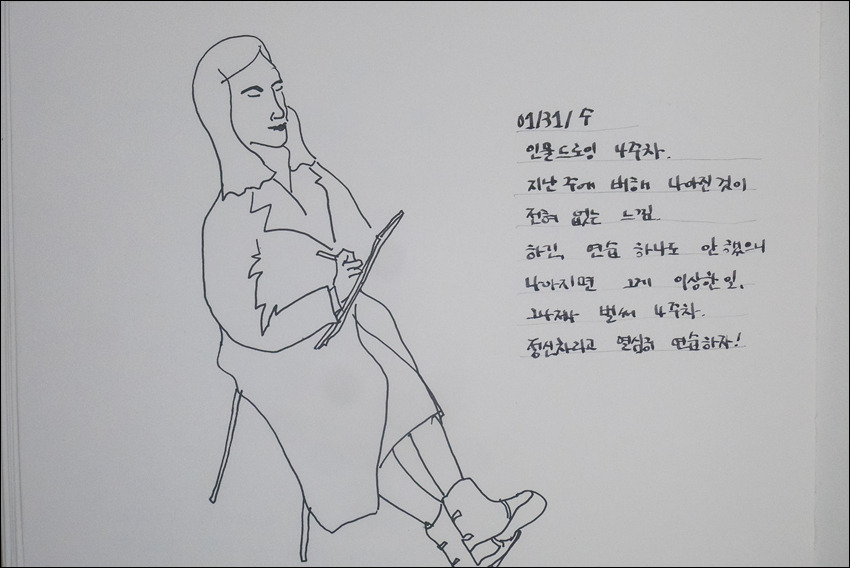 01/31/ 수
인물드로잉 4주차.
지난 주에 비해 나아진 것이
전혀 없는 느낌.
하긴, 연습 하나도 안 했으니
나아지면 그게 이상한 일.
그나저나 벌써 4주차.
정신차리고 열심히 연습하자!